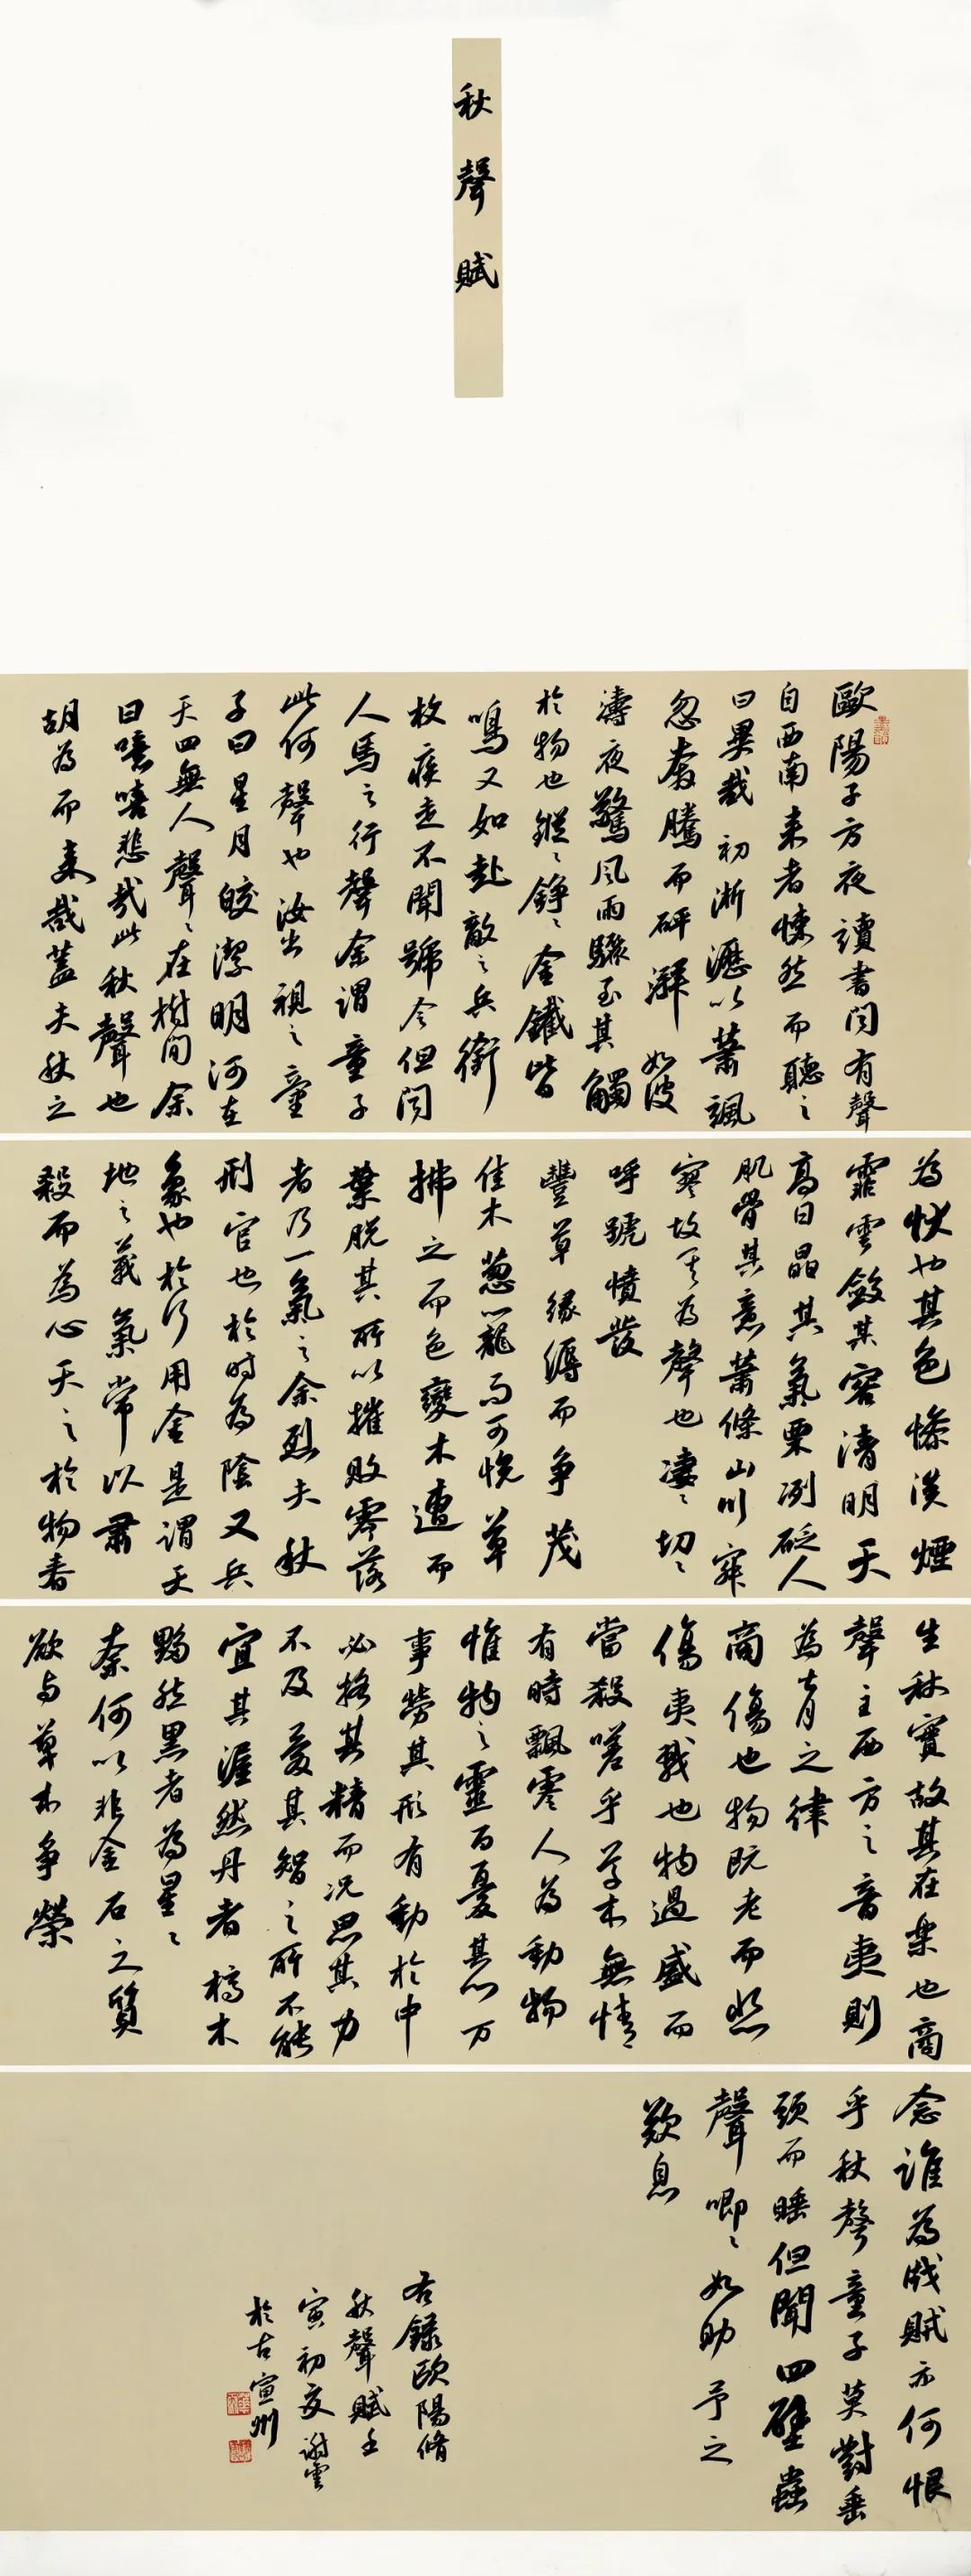 秋聲賦
歐陽子方夜讀書聞有聲
自西南來者悚然而聽之
曰異哉初淅瀝以蕭颯
忽奔騰而砰湃如波
濤夜驚風雨驟至其觸
於物也鏦〻錚〻金鐵皆
鳴又如赴敵之兵銜
枚疾走不聞號令但聞
人馬之行聲余謂童子
此何聲也汝出視之童
子曰星月皎潔明河在
天四無人聲〻在樹間余
曰噫嘻悲哉此秋聲也
胡為而來哉蓋夫秋之
為狀也其色慘淡煙
霏雲斂其容清明天
高日晶其氣栗冽砭人
肌骨其意蕭條山川寂
寥故其為聲也淒〻切〻
呼號憤發
豐草綠縟而爭茂
佳木蔥籠而可悅草
拂之而色變木遭而
葉脫其所以摧敗零落
者乃一氣之余烈夫秋
刑官也於时為陰又兵
象也於行用金是謂天
地之義氣常以肅
殺而為心天之於物春
生秋實故其在樂也商
聲主西方之音夷則
為七月之律
商傷也物既老而悲
傷夷戮也物過盛而
當殺嗟乎草木無情
有時飄零人為動物
惟物之靈百憂其心万
事勞其形有動於中
必搖其精而況思其力
不及憂其智之所不能
宜其渥然丹者槁木
黟然黑者為星〻
奈何以非金石之質
欲与草木爭榮
念誰為戕賊亦何恨
乎秋聲童子莫對垂
頭而睡但聞四壁蟲
聲唧〻如助予之
歎息
右錄歐陽脩
秋聲賦壬
寅初夏謝雲
於古宣州